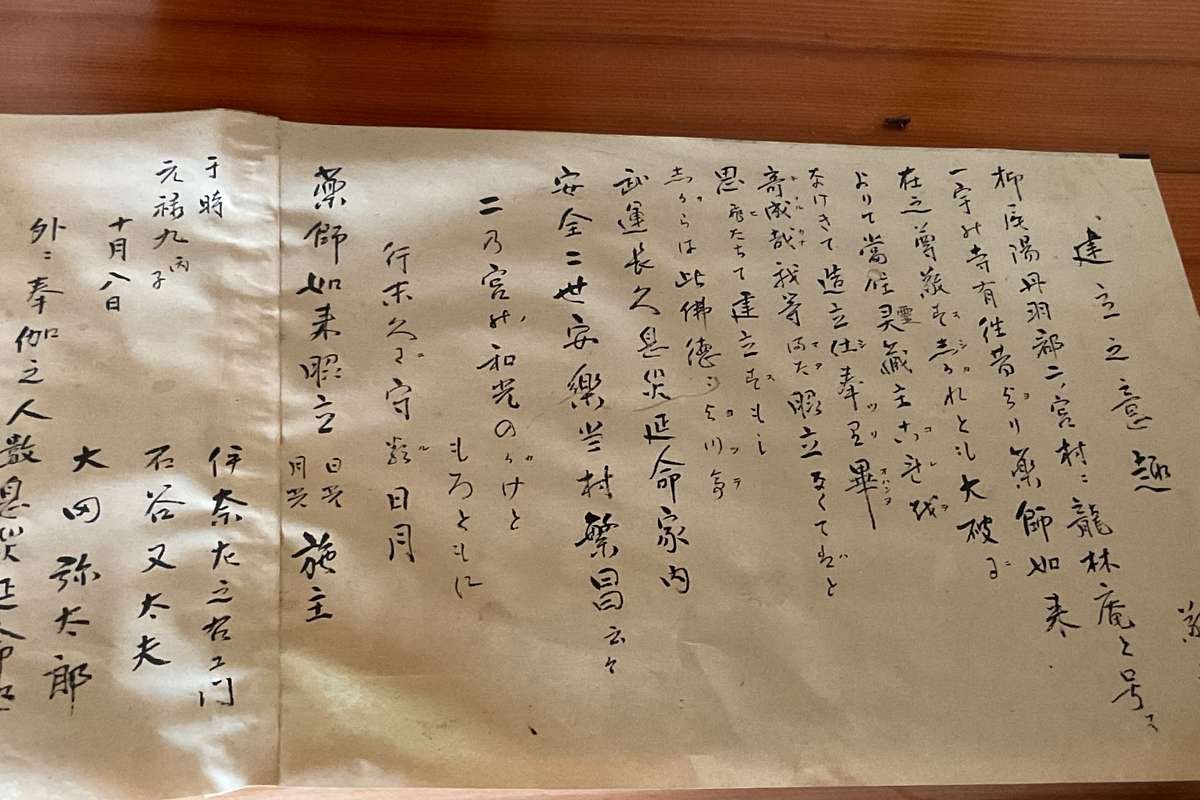 建立之意趣
抑尾陽丹羽郡二ノ宮村ニ龍林庵と号ス
一宇の寺有往昔より薬師如来
在之尊敬すしかれとも大破に
よりて當住霊蔵主これを
なけきて造立仕奉り畢
寄成哉我等また脇立なくてはと
思ひたちて建立すもし
しからは此佛徳によつて
武運長久息災延命家内
安全二世安樂当村繁昌云々
二乃宮の和光のかけと
もろともに
行末久に守る日月
薬師如来脇立 日光 月光 施主
于時
元禄九丙子
十月八日
伊奈九之右エ門
石谷又太夫
大田弥太郎
外ニ奉伽之人数息災延命